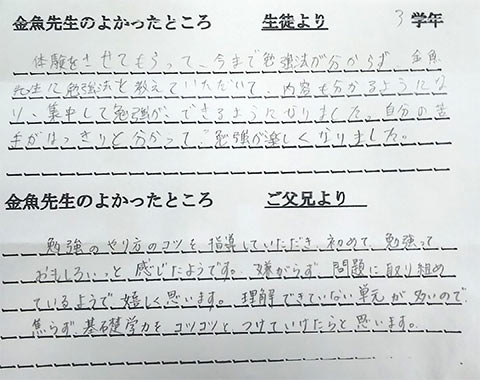 金魚先生のよかったところ 生徒より 3 学年
体験をさせてもらって、今まで勉強法が分からず、金魚
先生に勉強法を教えていただいて、内容も分かるようにな
り、集中して勉強が、できるようになりました。自分の苦
手がはっきりと分かって、勉強が楽しくなりました。
金魚先生のよかったところ ご父兄より
勉強のやり方のコツを指導していただき、初めて、勉強って
おもしろいっと感じたようです。嫌がらず、問題に取り組め
ているようで、嬉しく思います。理解できていない単元が多いので、
焦らず、基礎学力をコツコツと、つけていけたらと思います。